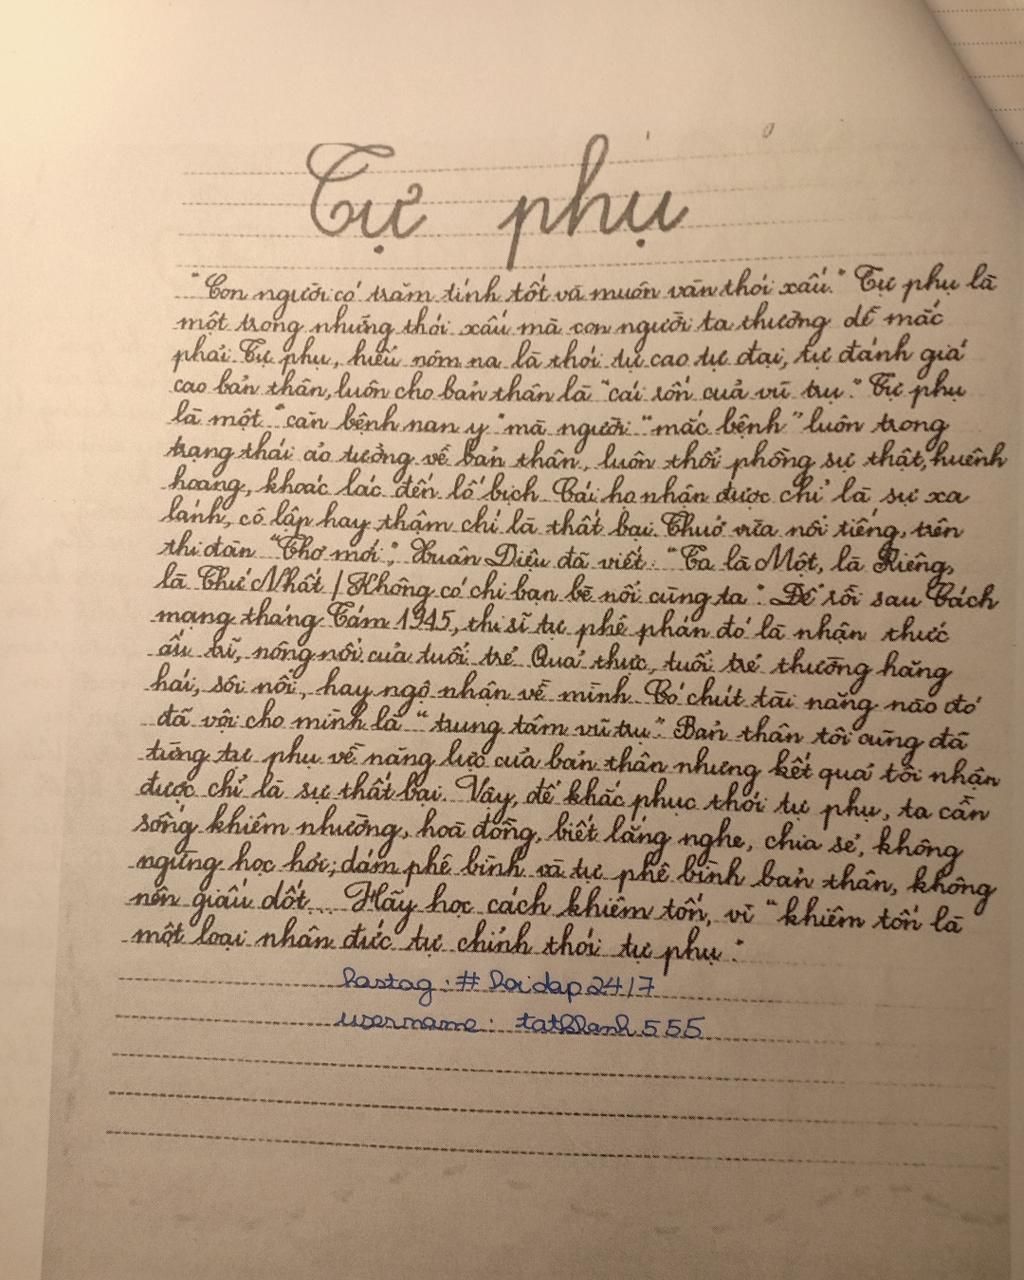 Tự phụ
"Con người có trăm tính tốt và muôn vàn thói xấu." Tự phụ là
một trong những thói xấu mà con người ta thường dễ mắc
phải. Tự phụ, hiểu nôm na là thói tự cao tự đại, tự đánh giá
cao bản thân, luôn cho bản thân là "cái rốn của vũ trụ." Tự phụ
là một "căn bệnh nan y" mà người "mắc bệnh" luôn trong
trạng thái ảo tưởng về bản thân, luôn thổi phồng sự thật, huênh
hoang, khoác lác đến lố bịch. Cái họ nhận được chỉ là sự xa
lánh, cô lập hay thậm chí là thất bại. Thuở vừa nổi tiếng, trên
thi đàn "Thơ mới", Xuân Diệu đã viết: "Ta là Một, là Riêng,
là Thứ Nhất / Không có chi bạn bè nổi cùng ta". Để rồi sau Cách
mạng tháng Tám 1945, thi sĩ tự phê phán đó là nhận thức
ấu trĩ, nông nổi của tuổi trẻ. Quả thực, tuổi trẻ thường hăng
hái, sôi nổi, hay ngộ nhận về mình. Có chút tài năng nào đó
đã vội cho mình là "trung tâm vũ trụ". Bản thân tôi cũng đã
từng tự phụ về năng lực của bản thân nhưng kết quả tôi nhận
được chỉ là sự thất bại. Vậy, để khắc phục thói tự phụ, ta cần
sống khiêm nhường, hoà đồng, biết lắng nghe, chia sẻ, không
ngừng học hỏi; dám phê bình và tự phê bình bản thân, không
nên giấu dốt... Hãy học cách khiêm tốn, vì "khiêm tốn là
một loại nhân đức tự chỉnh thói tự phụ".
hastag: #hoidap247
username: tatkhanh555